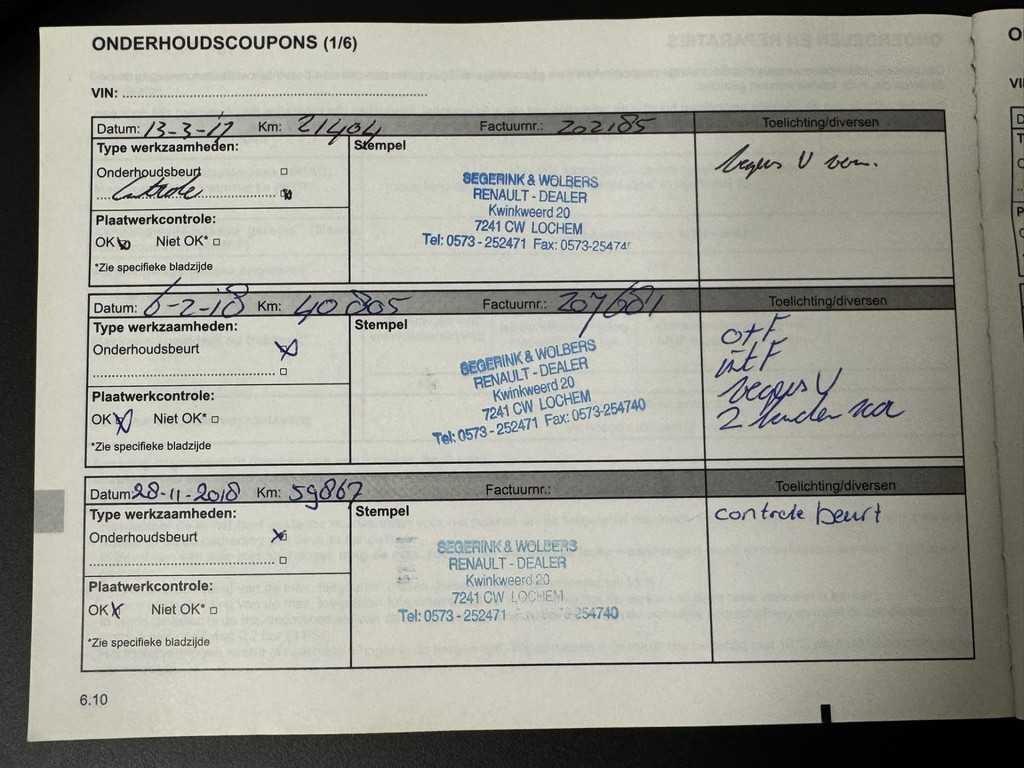 ONDERHOUDSCOUPONS (1/6)
VIN:
Datum: 13-3-17 Km: 21404 Factuurnr.: 202185 Toelichting/diversen
Type werkzaamheden: Stempel
Onderhoudsbeurt
Controle
Plaatwerkcontrole:
OK Niet OK*
*Zie specifieke bladzijde
SEGERINK & WOLBERS
RENAULT - DEALER
Kwinkweerd 20
7241 CW LOCHEM
Tel: 0573-252471 Fax: 0573-25474
Datum: 6-2-18 Km: 40805 Factuurnr.: 207681 Toelichting/diversen
Type werkzaamheden: Stempel
Onderhoudsbeurt
Plaatwerkcontrole:
OK Niet OK*
*Zie specifieke bladzijde
SEGERINK & WOLBERS
RENAULT - DEALER
Kwinkweerd 20
7241 CW LOCHEM
Tel: 0573-252471 Fax: 0573-254740
o+F
int F
2
Datum: 28-11-2018 Km: 59867 Factuurnr.: Toelichting/diversen
Type werkzaamheden: Stempel
Onderhoudsbeurt
Plaatwerkcontrole:
OK Niet OK*
*Zie specifieke bladzijde
SEGERINK & WOLBERS
RENAULT - DEALER
Kwinkweerd 20
7241 CW LOCHEM
Tel: 0573-252471 0573-254740
controle beurt
6.10